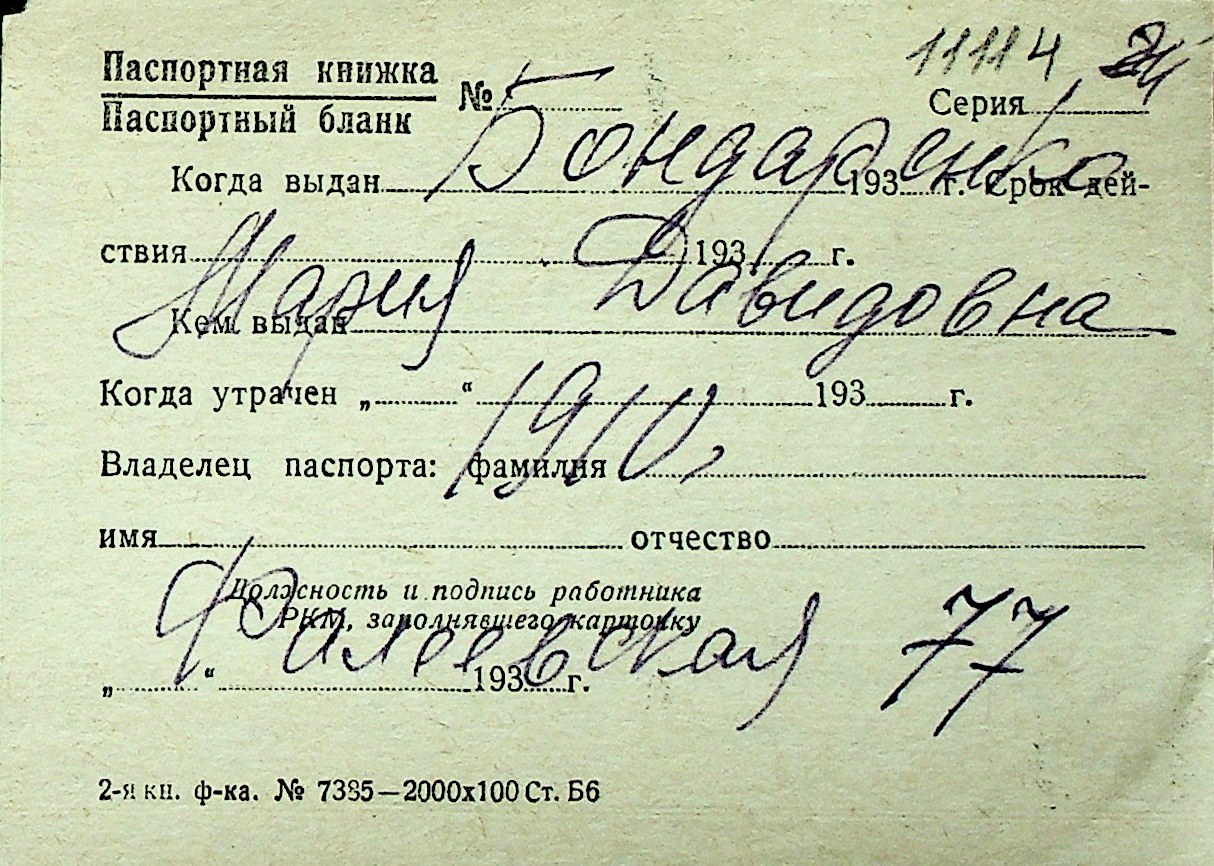 11114 24
Паспортная книжка
Паспортный бланк № Серия
Бондаренко
Когда выдан 193 г. Срок дей-
ствия 193 г.
Мария Давидовна
Кем выдан
Когда утрачен „ “ 193 г.
1910,
Владелец паспорта: фамилия
имя отчество
Должность и подпись работника
РКМ, заполнявшего карточку
Фалеевская 77
„ “ 193 г.
2-я кн. ф-ка. № 7385—2000х100 Ст. Б6